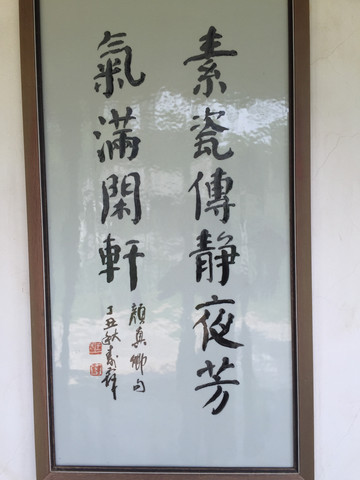 素瓷傳靜夜芳
氣滿閑軒
顏真卿句
丁丑秋